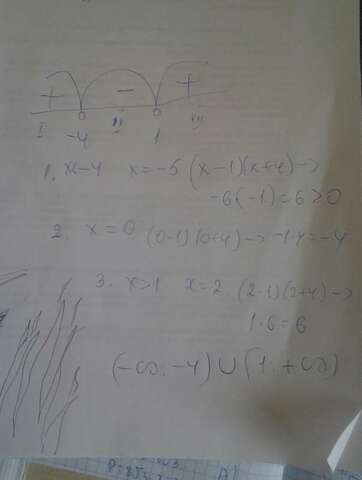 + - +
I -4 II 1 III
1. x<-4 x=-5 (x-1)(x+4)->
-6(-1)=6>0
2. x=0 (0-1)(0+4)-> -1·4=-4
3. x>1 x=2 (2-1)(2+4)->
1·6=6
(-∞;-4)∪(1;+∞)